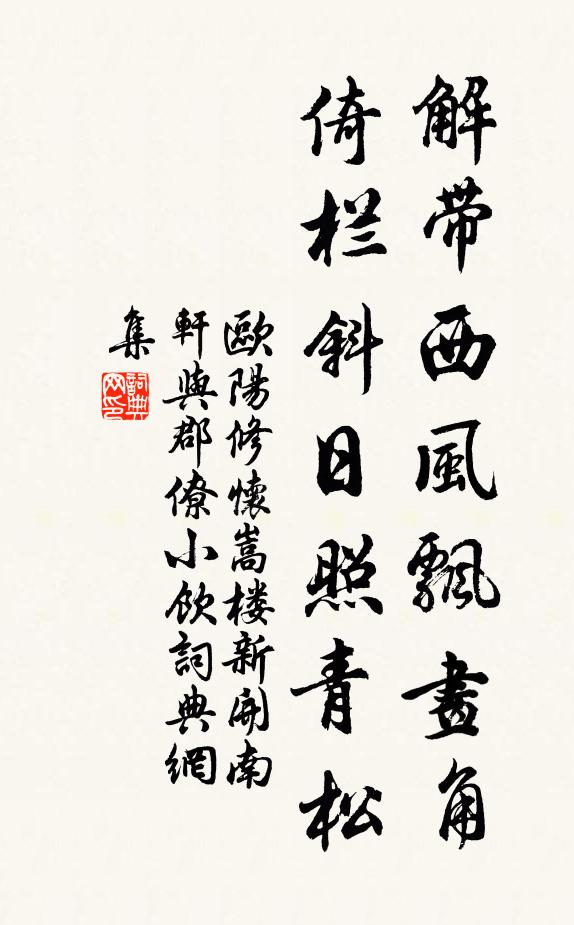 解带西風飄畫角
倚栏斜日照青松
歐陽修懷嵩楼新開南
軒與郡僚小飲詞典網
集
詞典
网印